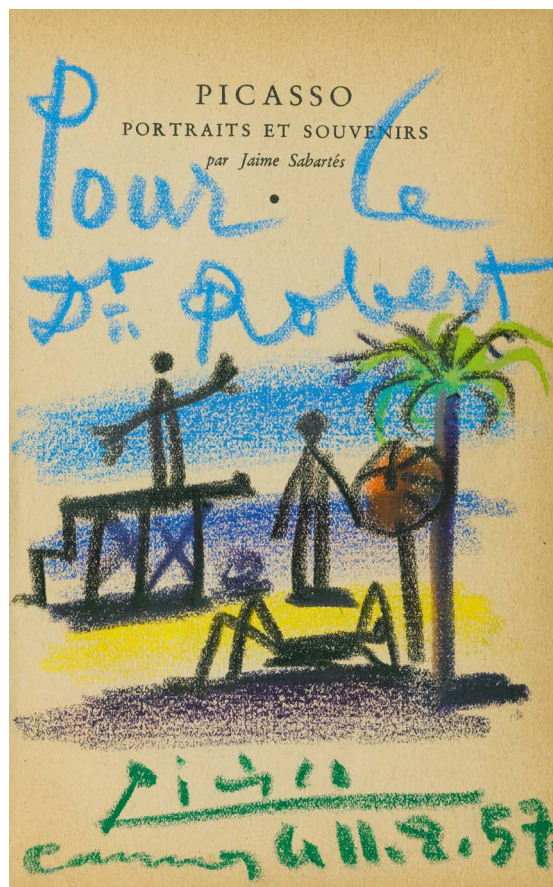 PICASSO
PORTRAITS ET SOUVENIRS
par Jaime Sabartés
Pour le
Dr. Robert
Picasso
Cannes le 11.8.57.